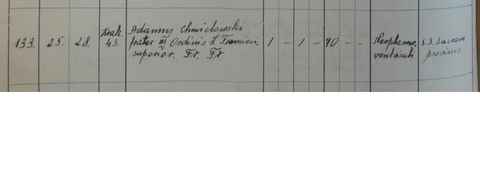 133. 25. 28. Krak. 43 Adamus Chmielowski 1 - 1 - 70 - - Neoplasma S.S. Sacram
frater III Ordinis S. Francisci, ventriculi provisus
superior. Fr. Fr.